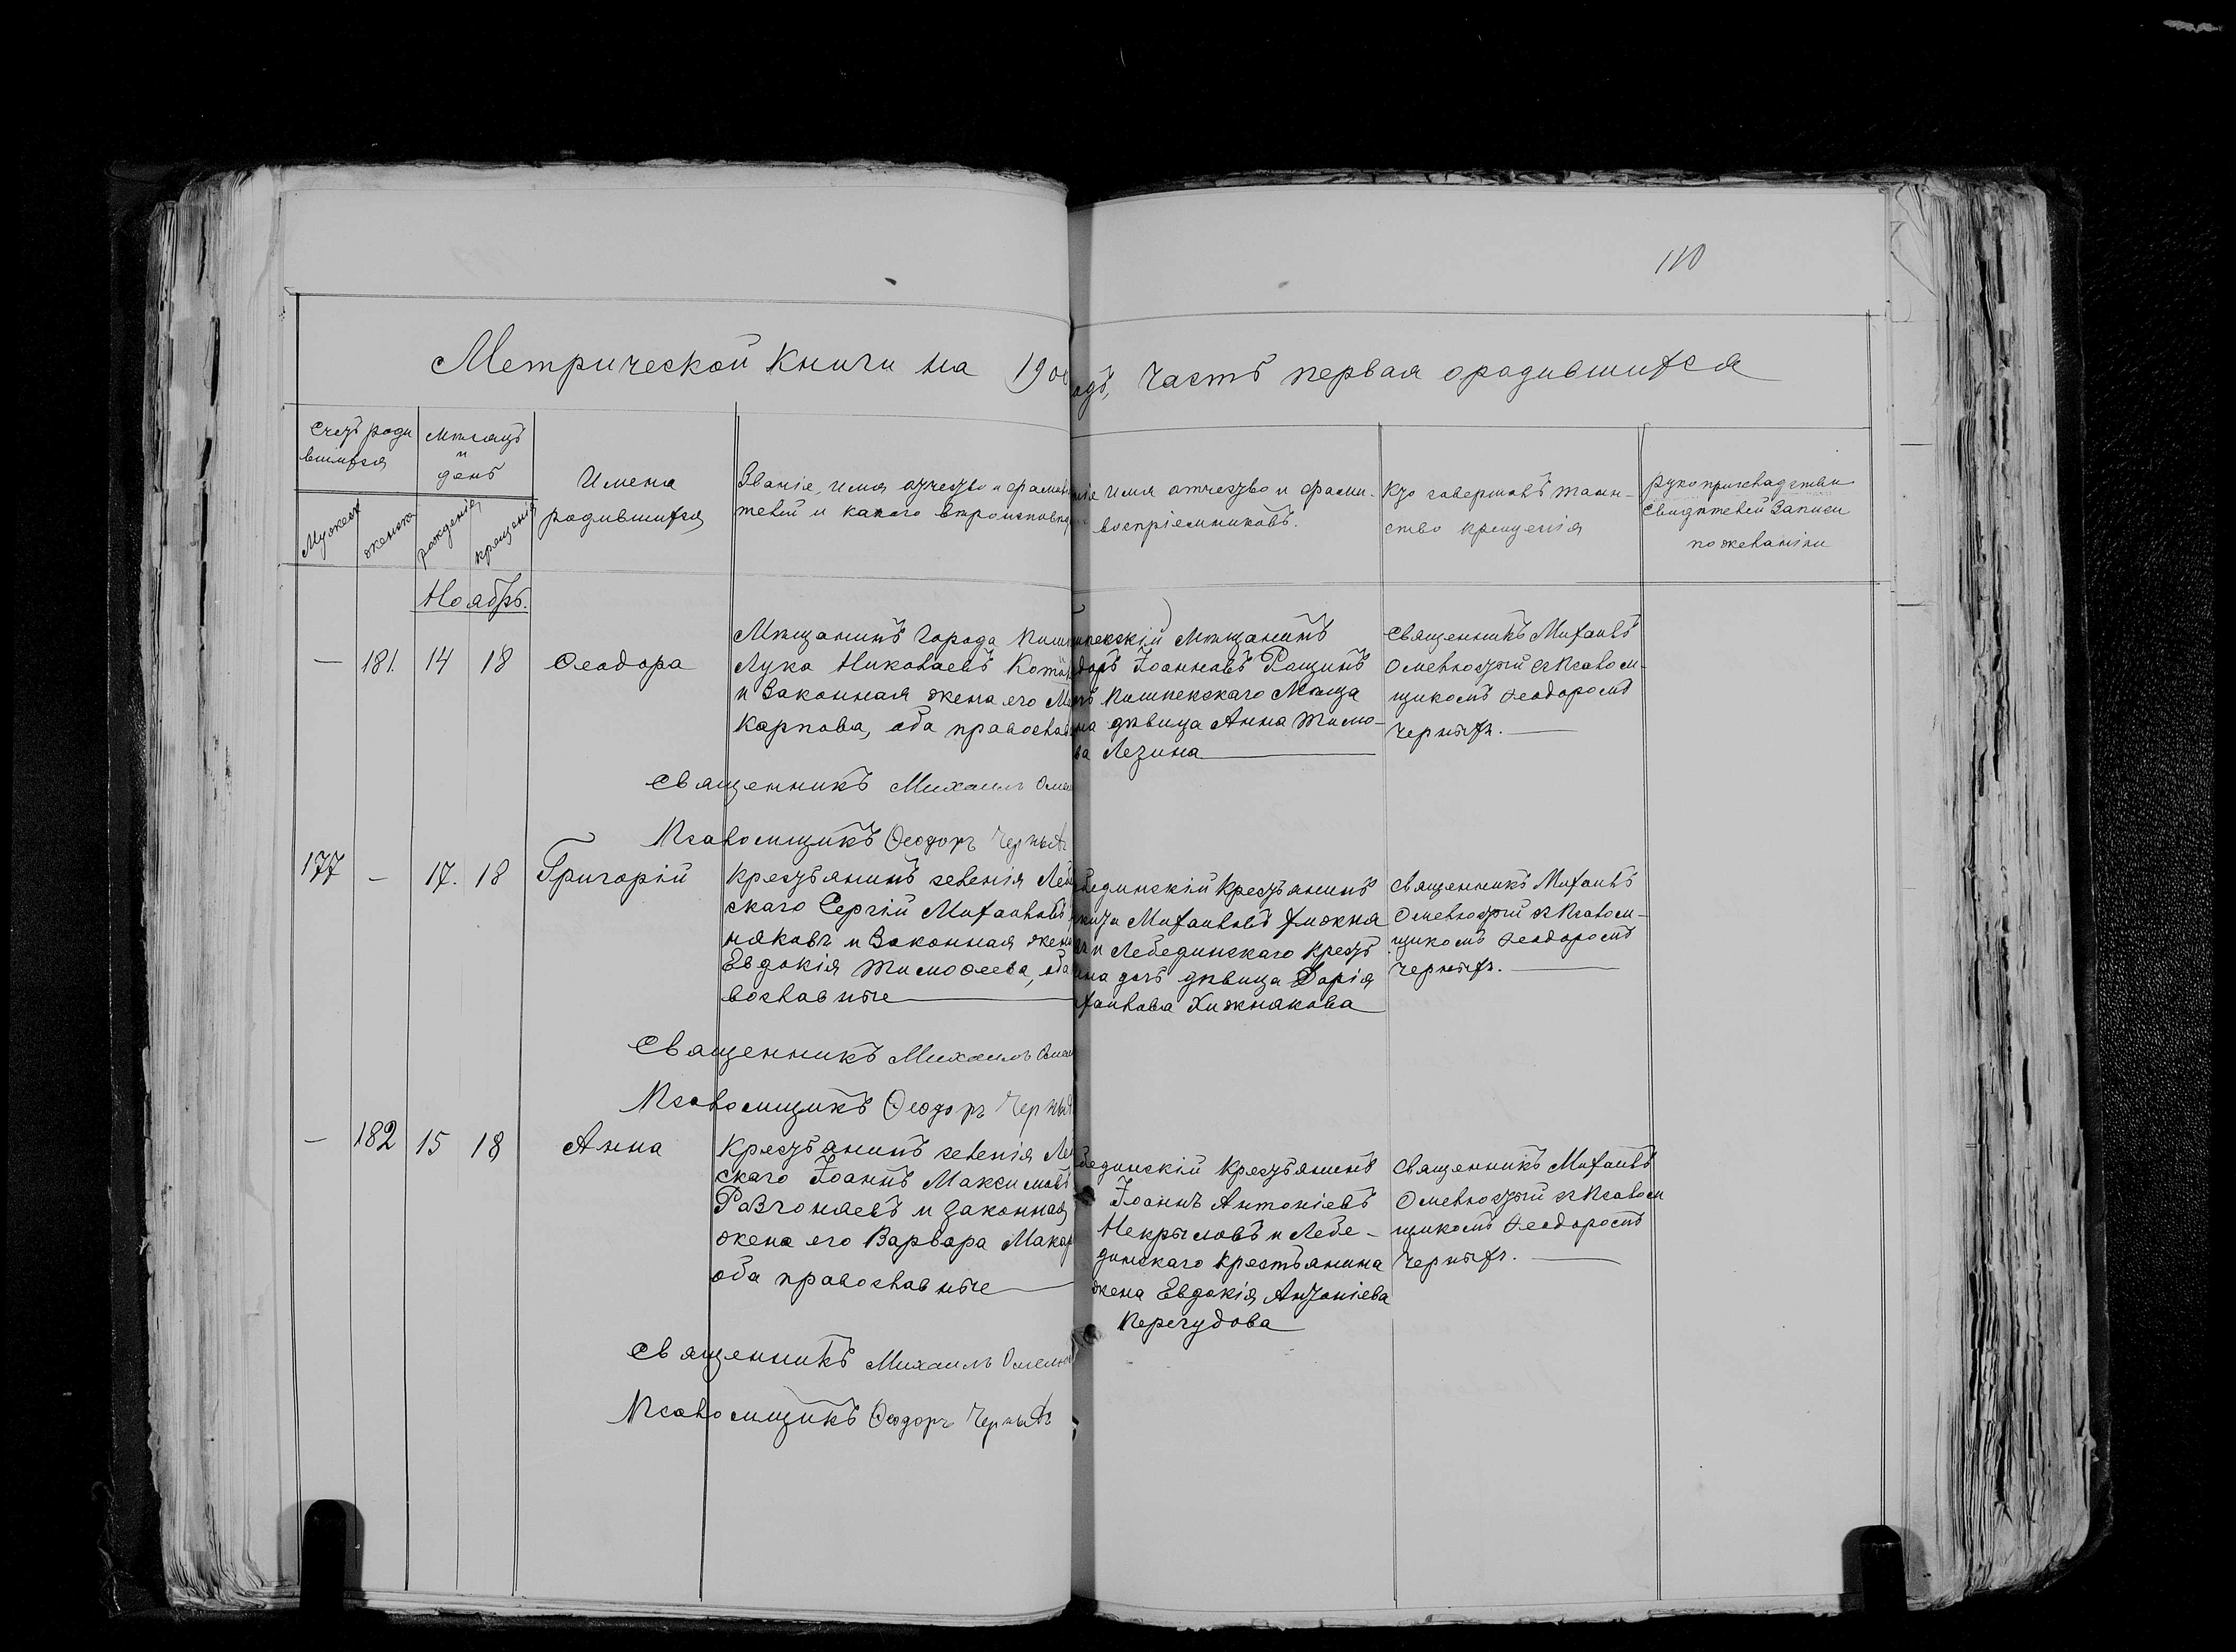 110
Метрической книги на 190
одъ, Часть первая ородившихся
Счетъ роди
вшихся
Мѣсяцъ
и
день
Мужеск
женска
рожденія
крещенія
Имена
родившихся
Званіе, имя отчество и фамил
телей и какого вѣроисповѣд
ніе имя отчество и фами-
воспріемниковъ.
Кто совершалъ таин-
ство крещенія
рукоприкладство
свидѣтелей записи
по желанію
Ноябрь.
— 181. 14 18 Ѳеодора
Мѣщанинъ города Пиш
Лука Николаевъ Кот
и законная жена его М
Карпова, оба православ
пекскій Мѣщанинъ
доръ Іоанновъ Рощинъ
Пишпекскаго Мѣща
на дѣвица Анна Тимо-
ва Лезина
Священникъ Михаилъ
Омелюстый съ Псалом-
щикомъ Ѳеодоромъ
Черныхъ.
Священникъ Михаилъ Омел
Псаломщикъ Ѳеодоръ Черныхъ
177 — 17. 18 Григорій
Крестьянинъ селенія Леб
скаго Сергій Михаиловъ
няковъ и законная жена
Евдокія Тимоѳеева, оба
вославные
бединскій крестьянинъ
Михаиловъ Хижня
и Лебединскаго крест
ина дочь дѣвица Дарія
хаилова Хижнякова
Священникъ Михаилъ
Омелюстый съ Псалом-
щикомъ Ѳеодоромъ
Черныхъ.
Священникъ Михаилъ Омел
Псаломщикъ Ѳеодоръ Черных
— 182 15 18 Анна
Крестьянинъ селенія Ле
скаго Іоаннъ Максимовъ
Разгоняевъ и законная
жена его Варвара Макар
оба православные
бединскій крестьянинъ
Іоаннъ Антоніевъ
Некрыловъ и Лебе-
динскаго крестьянина
жена Евдокія Антоніева
Перегудова
Священникъ Михаилъ
Омелюстый съ Псалом
щикомъ Ѳеодоромъ
Черныхъ.
Священникъ Михаилъ Омелю
Псаломщикъ Ѳеодоръ Черныхъ